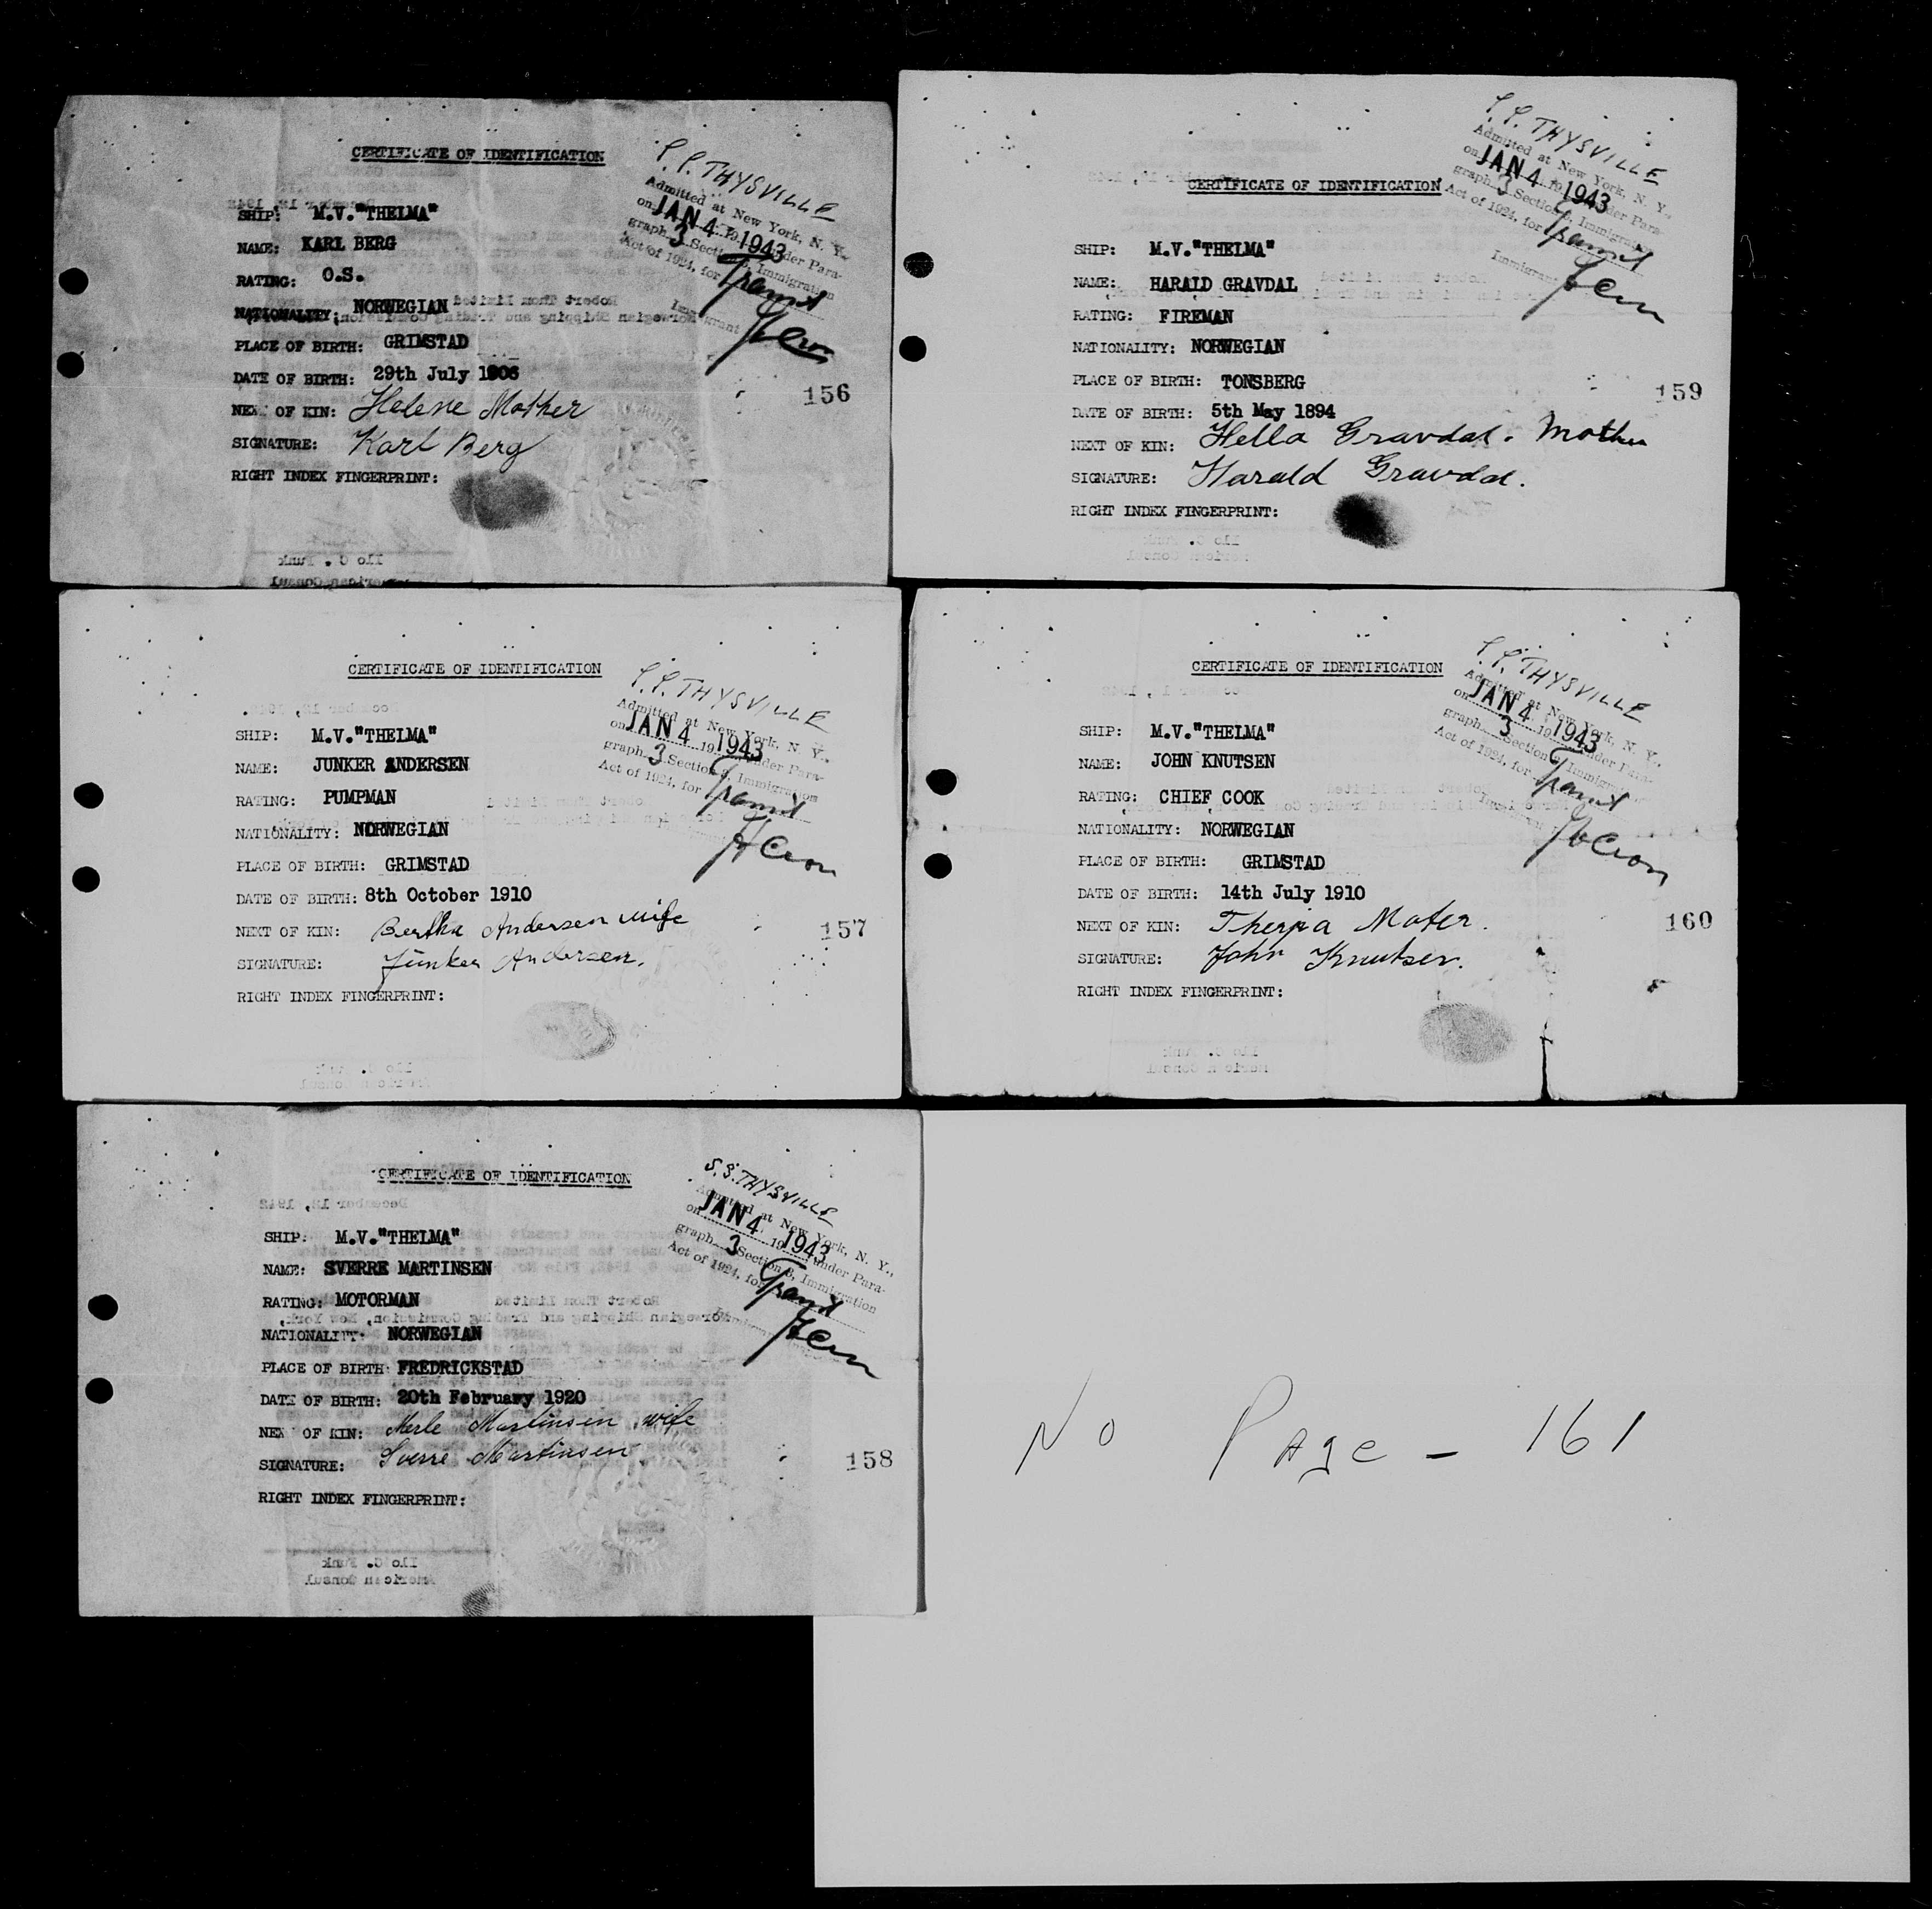 CERTIFICATE OF IDENTIFICATION
S.S. THYSVILLE
Admitted at New York, N. Y.,
on JAN 4 19 1943 under Para-
graph 3 Section 3, Immigration
Act of 1924, for Transit
Immigrant
SHIP: M.V."THELMA"
NAME: KARL BERG
RATING: O.S.
NATIONALITY: NORWEGIAN
PLACE OF BIRTH: GRIMSTAD
DATE OF BIRTH: 29th July 1906
NEXT OF KIN: Helene Mother
SIGNATURE: Karl Berg
RIGHT INDEX FINGERPRINT:
156
CERTIFICATE OF IDENTIFICATION
S.S. THYSVILLE
Admitted at New York, N. Y.,
on JAN 4 19 1943 under Para-
graph 3 Section 3, Immigration
Act of 1924, for Transit
Immigrant
SHIP: M.V."THELMA"
NAME: HARALD GRAVDAL
RATING: FIREMAN
NATIONALITY: NORWEGIAN
PLACE OF BIRTH: TONSBERG
DATE OF BIRTH: 5th May 1894
NEXT OF KIN: Hella Gravdal. Mother
SIGNATURE: Harald Gravdal.
RIGHT INDEX FINGERPRINT:
159
CERTIFICATE OF IDENTIFICATION
S.S. THYSVILLE
Admitted at New York, N. Y.,
on JAN 4 19 1943 under Para-
graph 3 Section 3, Immigration
Act of 1924, for Transit
SHIP: M.V."THELMA"
NAME: JUNKER ANDERSEN
RATING: PUMPMAN
NATIONALITY: NORWEGIAN
PLACE OF BIRTH: GRIMSTAD
DATE OF BIRTH: 8th October 1910
NEXT OF KIN: Bertha Andersen wife
SIGNATURE: Junker Andersen.
RIGHT INDEX FINGERPRINT:
157
CERTIFICATE OF IDENTIFICATION
S.S. THYSVILLE
Admitted at New York, N. Y.,
on JAN 4 19 1943 under Para-
graph 3 Section 3, Immigration
Act of 1924, for Transit
SHIP: M.V."THELMA"
NAME: JOHN KNUTSEN
RATING: CHIEF COOK
NATIONALITY: NORWEGIAN
PLACE OF BIRTH: GRIMSTAD
DATE OF BIRTH: 14th July 1910
NEXT OF KIN: Moter.
SIGNATURE: John Knutsen.
RIGHT INDEX FINGERPRINT:
160
CERTIFICATE OF IDENTIFICATION
S.S. THYSVILLE
Admitted at New York, N. Y.,
on JAN 4 19 1943 under Para-
graph 3 Section 3, Immigration
Act of 1924, for Transit
SHIP: M.V."THELMA"
NAME: SVERRE MARTINSEN
RATING: MOTORMAN
NATIONALITY: NORWEGIAN
PLACE OF BIRTH: FREDRICKSTAD
DATE OF BIRTH: 20th February 1920
NEXT OF KIN: Merle Martinsen wife
SIGNATURE: Sverre Martinsen
RIGHT INDEX FINGERPRINT:
158
No Page - 161